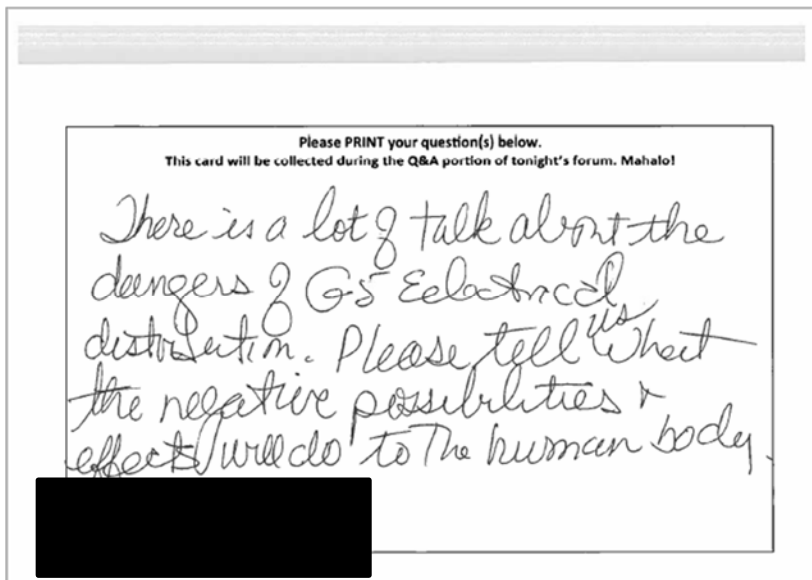 Please PRINT your question(s) below.
This card will be collected during the Q&A portion of tonight's forum. Mahalo!
There is a lot of talk about the
dangers of G-5 Eclectrical
distribution. Please tell us what
the negative possibilities &
effects will do to the human body.